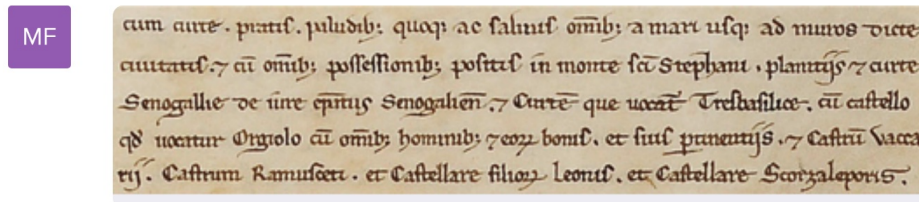 MF
cum curte . pratis . paludib; quoq; ac salinis om̅ib; a mari usq; ad muros dicte
ciuitatis . ⁊ cū om̅ib; possessionib; positis in monte sc̅i Stephani . planitijs ⁊ curte
Senogallie de iure ep̅itus Senogalien̅ . ⁊ Curte̅ que uocat̅ Tresbasilice . cū castello
qd̅ uocatur Orgiolo cū om̅ib; hominib; ⁊ eoꝝ bonis . et suis ꝑtinentijs . ⁊ Castrū Vacca
rij . Castrum Ramusceti . et Castellare filioꝝ Leonis . et Castellare Scorzaleporis .